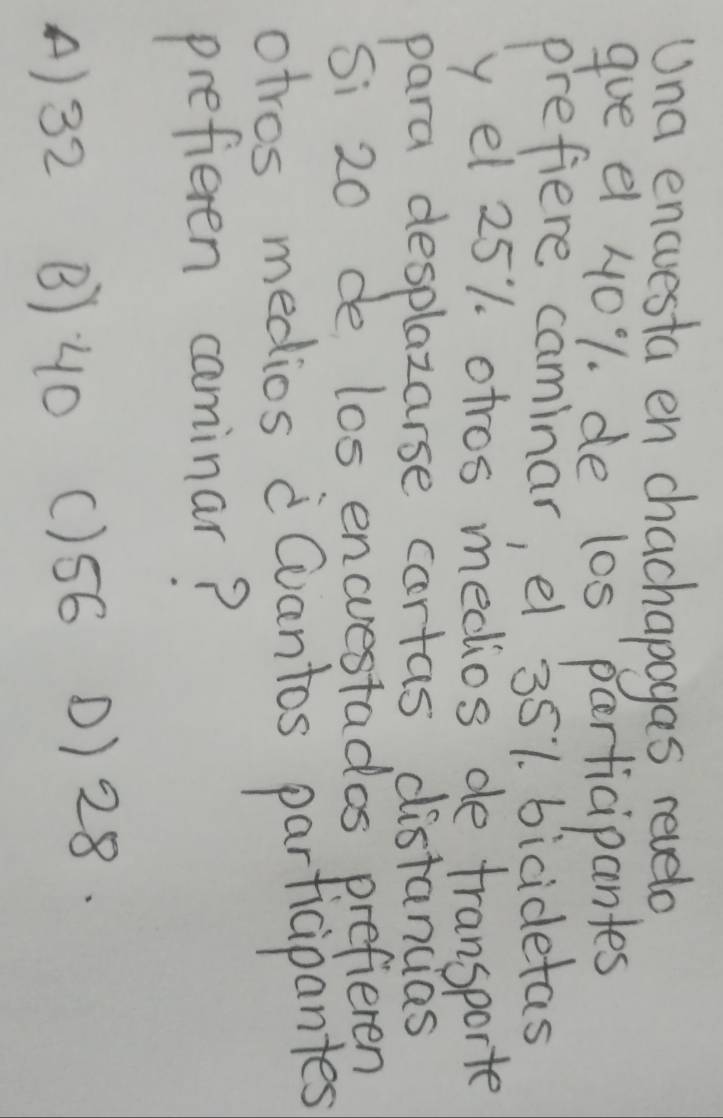 Una encuesta en chachapoyas revelo
que el 40% de los participantes
prefiere caminar, el 35% bicicletas
y el 25% otros medios de transporte
para desplazarse cortas distancias
Si 20 de los encuestados prefieren
otros medios ¿Cuantos participantes
prefieren caminar?
A) 32 B) 40 C) 56 D) 28.